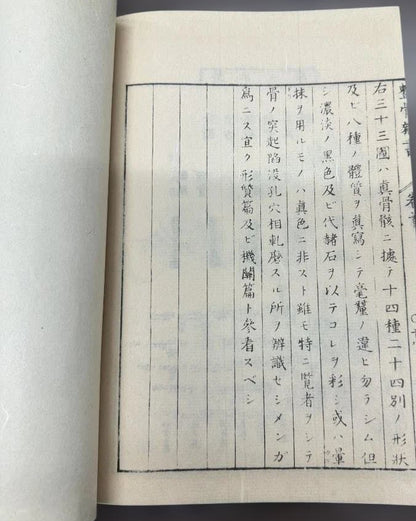 右三十三圖ハ真骨骸ニ據テ十四種二十四別ノ形狀
及ビ八種ノ體質ヲ真寫シテ毫釐ノ違ヒ勿ラシム但
シ濃淡ノ黒色及ビ代赭石ヲ以テコレヲ彩シ或ハ暈
抹ヲ用ルモノハ真色ニ非スト雖モ特ニ覧者ヲシテ
骨ノ突起陷没孔穴相軋磨スル所ノ辨識セシメンガ
爲ニス宜ク形質篇及ビ機關篇ト參看スベシ